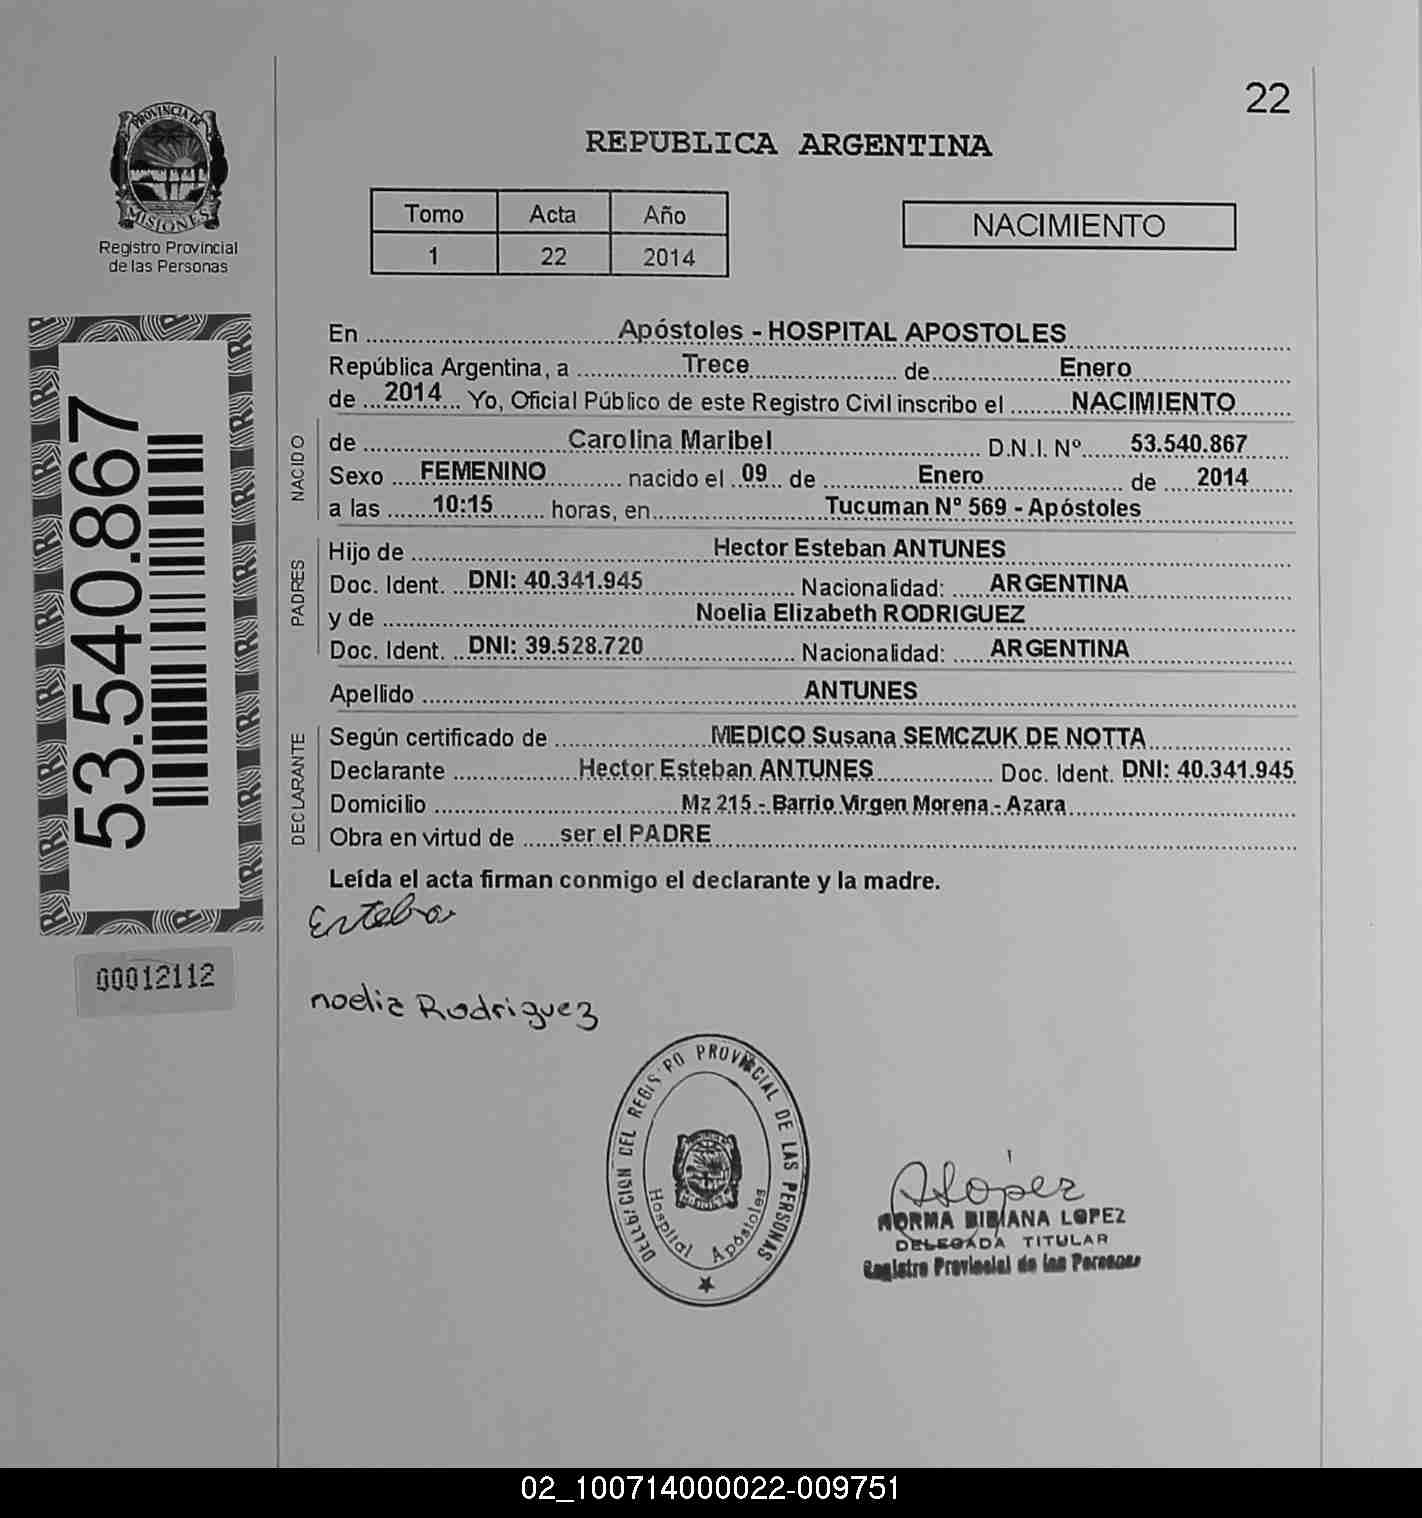 22
PROVINCIA DE
MISIONES
Registro Provincial
de las Personas
REPUBLICA ARGENTINA
Tomo Acta Año
1 22 2014
NACIMIENTO
53.540.867
00012112
En Apóstoles - HOSPITAL APOSTOLES
República Argentina, a Trece de Enero
de 2014 Yo, Oficial Público de este Registro Civil inscribo el NACIMIENTO
NACIDO
de Carolina Maribel D.N.I. Nº 53.540.867
Sexo FEMENINO nacido el 09 de Enero de 2014
a las 10:15 horas, en Tucuman Nº 569 - Apóstoles
PADRES
Hijo de Hector Esteban ANTUNES
Doc. Ident. DNI: 40.341.945 Nacionalidad: ARGENTINA
y de Noelia Elizabeth RODRIGUEZ
Doc. Ident. DNI: 39.528.720 Nacionalidad: ARGENTINA
Apellido ANTUNES
DECLARANTE
Según certificado de MEDICO Susana SEMCZUK DE NOTTA
Declarante Hector Esteban ANTUNES Doc. Ident. DNI: 40.341.945
Domicilio Mz 215 - Barrio Virgen Morena - Azara
Obra en virtud de ser el PADRE
Leída el acta firman conmigo el declarante y la madre.
Esteban
noelia Rodriguez
DELEGACION DEL REGISTRO PROVINCIAL DE LAS PERSONAS
Hospital Apóstoles
López
NORMA BIBIANA LOPEZ
DELEGADA TITULAR
Registro Provincial de las Personas
02_100714000022-009751